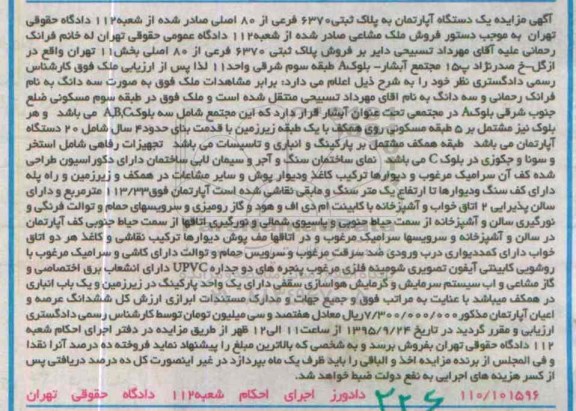 آگهی مزایده یک دستگاه آپارتمان به پلاک ثبتی۶۳۷۰ فرعی از ۸۰ اصلی صادر شده از شعبه۱۱۲ دادگاه حقوقی
تهران به موجب دستور فروش ملک مشاعی صادر شده از شعبه۱۱۲ دادگاه عمومی حقوقی تهران له خانم فرانک
رحمانی علیه آقای مهرداد تسبیحی دایر بر فروش پلاک ثبتی ۶۳۷۰ فرعی از ۸۰ اصلی بخش۱۱ تهران واقع در
ازگل-خ صدرنژاد پ۱۵ مجتمع آبشار- بلوکA طبقه سوم شرقی واحد۱۱ لذا پس از ارزیابی ملک فوق کارشناس
رسمی دادگستری نظر خود را به شرح ذیل اعلام می دارد: برابر مشاهدات ملک فوق به صورت سه دانگ به نام
فرانک رحمانی و سه دانگ به نام اقای مهرداد تسبیحی منتقل شده است و ملک فوق در طبقه سوم مسکونی ضلع
جنوب شرقی بلوکA در مجتمعی تحت عنوان آبشار قرار دارد که این مجتمع شامل سه بلوکA,B,C می باشد و هر
بلوک نیز مشتمل بر ۵ طبقه مسکونی روی همکف با یک طبقه زیرزمین با قدمت بنای حدود۴ سال شامل ۲۰ دستگاه
آپارتمان می باشد طبقه همکف مشتمل بر پارکینگ و انباری و تاسیسات می باشد تجهیزات رفاهی شامل استخر
و سونا و جکوزی در بلوک C می باشد نمای ساختمان سنگ و آجر و سیمان لابی ساختمان دارای دکوراسیون طراحی
شده کف آن سرامیک مرغوب و دیوارها ترکیب کاغذ ودیوار پوش و سایر مشاعات در همکف و زیرزمین و راه پله
دارای کف سنگ ودیوارها تا ارتفاع یک متر سنگ و مابقی نقاشی شده است آپارتمان فوق۱۱۳/۳۳ مترمربع و دارای
سالن پذیرایی ۲ اتاق خواب و آشپزخانه با کابینت ام دی اف و هود و گاز رومیزی و سرویسهای حمام و توالت فرنگی و
نورگیری سالن و آشپزخانه از سمت حیاط جنوبی و پاسیوی شمالی و نورگیری اتاقها از سمت حیاط جنوبی کف آپارتمان
در سالن و آشپزخانه و سرویسها سرامیک مرغوب و در اتاقها کف پوش دیوارها ترکیب نقاشی و کاغذ هر دو اتاق
خواب دارای کمددیواری درب ورودی ضد سرقت مرغوب و سرویس حمام و توالت دارای کاشی و سرامیک مرغوب با
روشویی کابینتی آیفون تصویری شومینه فلزی مرغوب پنجره های دو جداره UPVC دارای انشعاب برق اختصاصی و
گاز مشاعی و اب سیستم سرمایش و گرمایش هواسازی سقفی دارای یک واحد پارکینگ در زیرزمین و یک باب انباری
در همکف میباشد با عنایت به مراتب فوق و جمیع جهات و مدارک مستندات ابرازی ارزش کل ششدانگ عرصه و
اعیان آپارتمان مذکور ۷/۳۰۰/۰۰۰/۰۰۰ریال معادل هفتصد و سی میلیون تومان توسط کارشناس رسمی دادگستری
ارزیابی و مقرر گردید در تاریخ ۱۳۹۵/۹/۲۴ از ساعت۱۱ الی۱۲ ظهر از طریق مزایده در دفتر اجرای احکام شعبه
۱۱۲ دادگاه حقوقی تهران بفروش برسد و به شخصی که بالاترین مبلغ را پیشنهاد نماید فروخته ده درصد آنرا نقدا
و فی المجلس از برنده مزایده اخذ و الباقی را باید ظرف یک ماه بپردازد در غیر اینصورت کل ده درصد دریافتی پس
از کسر هزینه های اجرایی به نفع دولت ضبط خواهد شد.
۱۱۰/۱۰۱۵۹۶ ۲۲۶ دادورز اجرای احکام شعبه۱۱۲ دادگاه حقوقی تهران